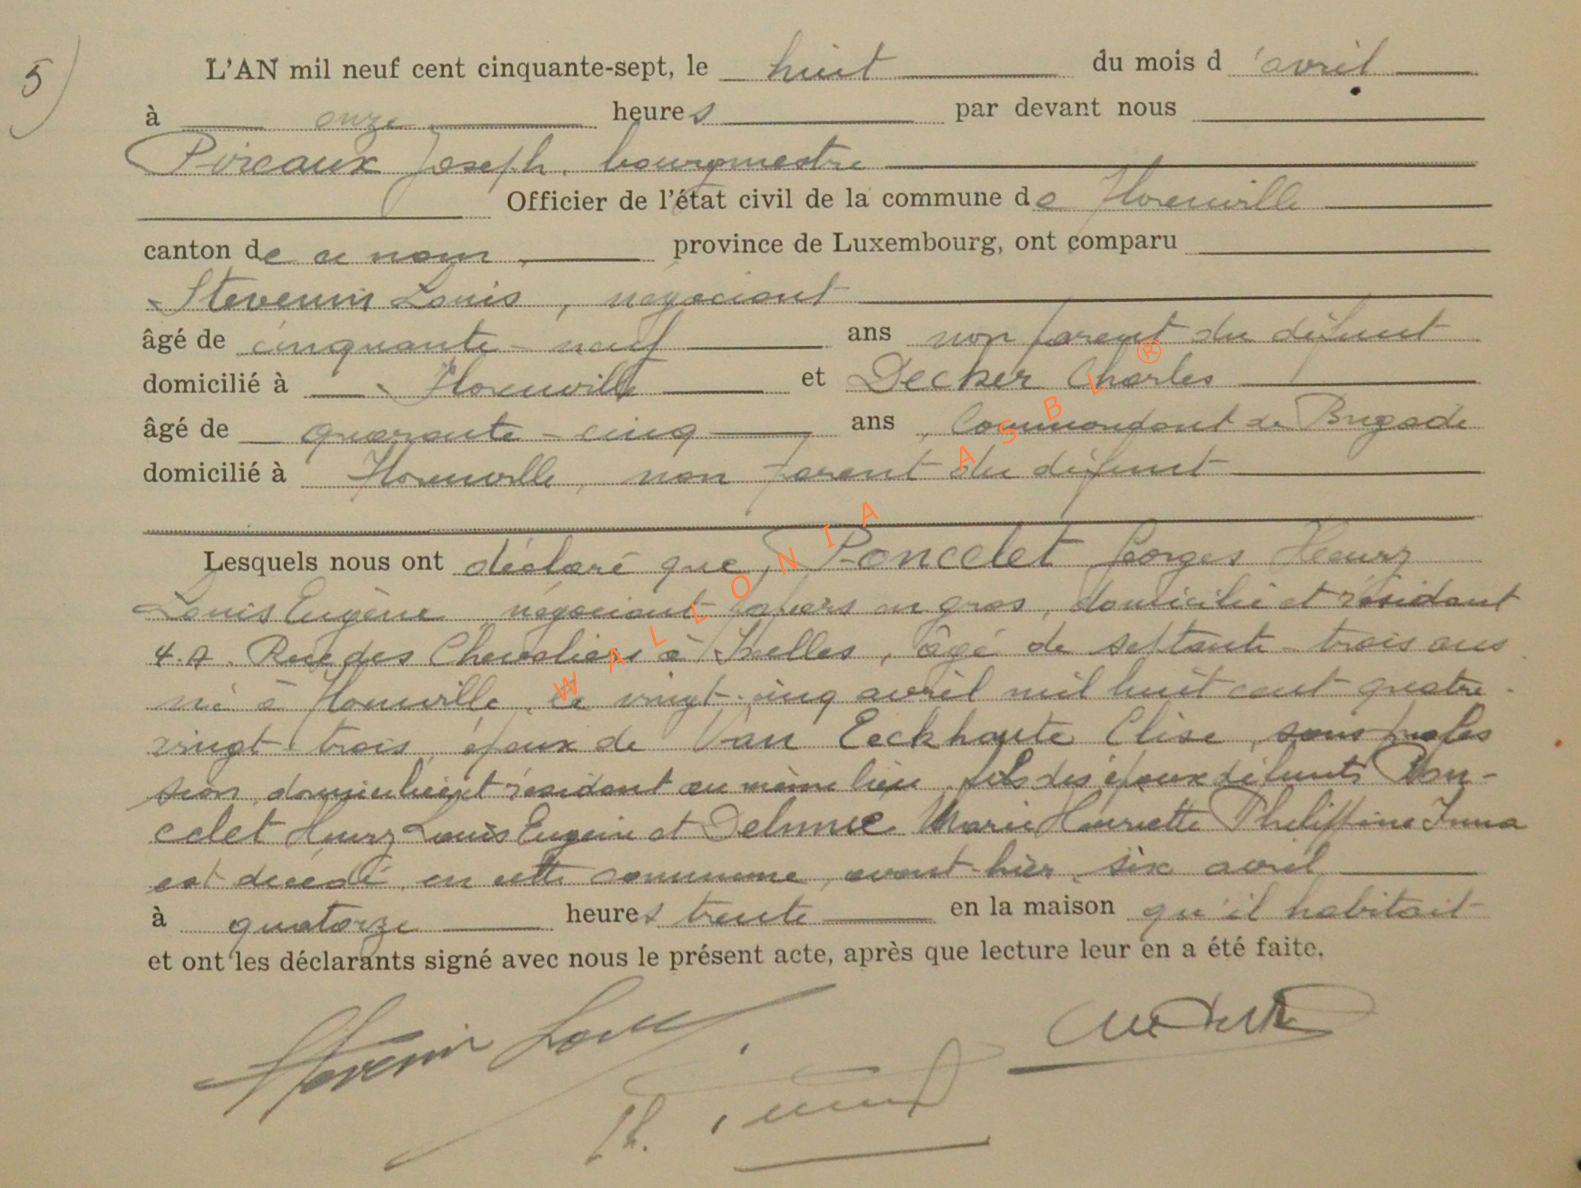 5)
L'AN mil neuf cent cinquante-sept, le huit du mois d'avril
à onze heures par devant nous
Pireaux Joseph, bourgmestre
Officier de l'état civil de la commune de Florenville
canton de ce nom, province de Luxembourg, ont comparu
Stevenin Louis, négociant
âgé de cinquante-neuf ans non parent du défunt
domicilié à Florenville et Decker Charles
âgé de quarante-cinq ans, Commandant de Brigade
domicilié à Florenville, non parent du défunt
Lesquels nous ont déclaré que, Poncelet Georges Henry
Louis Eugène négociant papiers en gros, domicilié et résidant
Rue des Chevaliers à Ixelles, âgé de septante-trois ans
né à Florenville, le vingt-cinq avril mil huit cent quatre-
vingt-trois, époux de Van Eeckhoute Elise, sans profes
sion, domiciliée et résidant au même lieu, fils des époux défunts Pon-
celet Henry Louis Eugène et Marie Henriette Philippine Irma
est décédé, en cette commune, avant-hier, six avril
à quatorze heures trente en la maison qu'il habitait
et ont les déclarants signé avec nous le présent acte, après que lecture leur en a été faite.
Stevenin Louis
WALLONIA ASBL ®